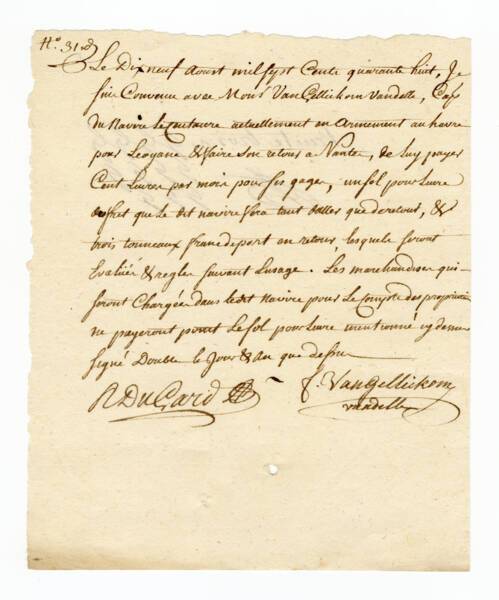 No. 31
Le Dixneuf Aoust mil sept Cents quarante huit, Je
suis Convenu avec Monsr VanGellickom Vandelle, Cap
du Navire Le Centaure actuellement en Armement au havre
pour Leogane & faire son retour a Nantes, de luy payer
Cent Livres par mois pour ses gages, un sol pour Livre
de fret que Le dit navire fera tant dalles que de retour, &
trois tonneaux franc de port en retour, lesquels seront
Evalués & reglés suivant Lusage. Les marchandises qui
seront Chargées dans ledt Navire pour Le Compte des proprietaires
ne payeront point Le sol pour Livre mentionné cy dessus
signé Double le Jour & An que dessus
R DuGard
f. VanGellickom
vandelle